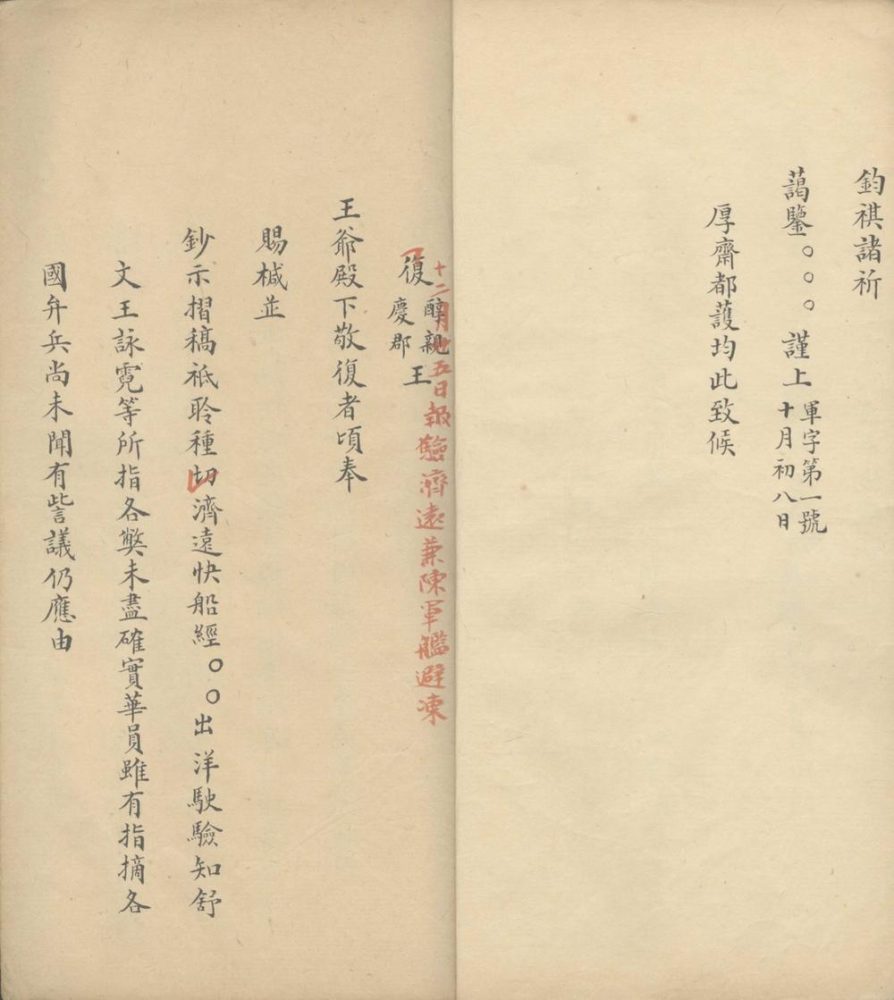 鈞祺諸祈
藹鑒○○○謹上 軍字第一號
十月初八日
厚齋都護均此致候
十二月廿五日報驗濟遠兼陳軍艦避凍
復 醇親
慶郡 王
王爺殿下敬復者頃奉
賜椷並
鈔示摺稿祗聆種切濟遠快船經○○出洋駛驗知舒
文王詠霓等所指各獘未盡確實華員雖有指摘各
國弁兵尚未聞有訾議仍應由